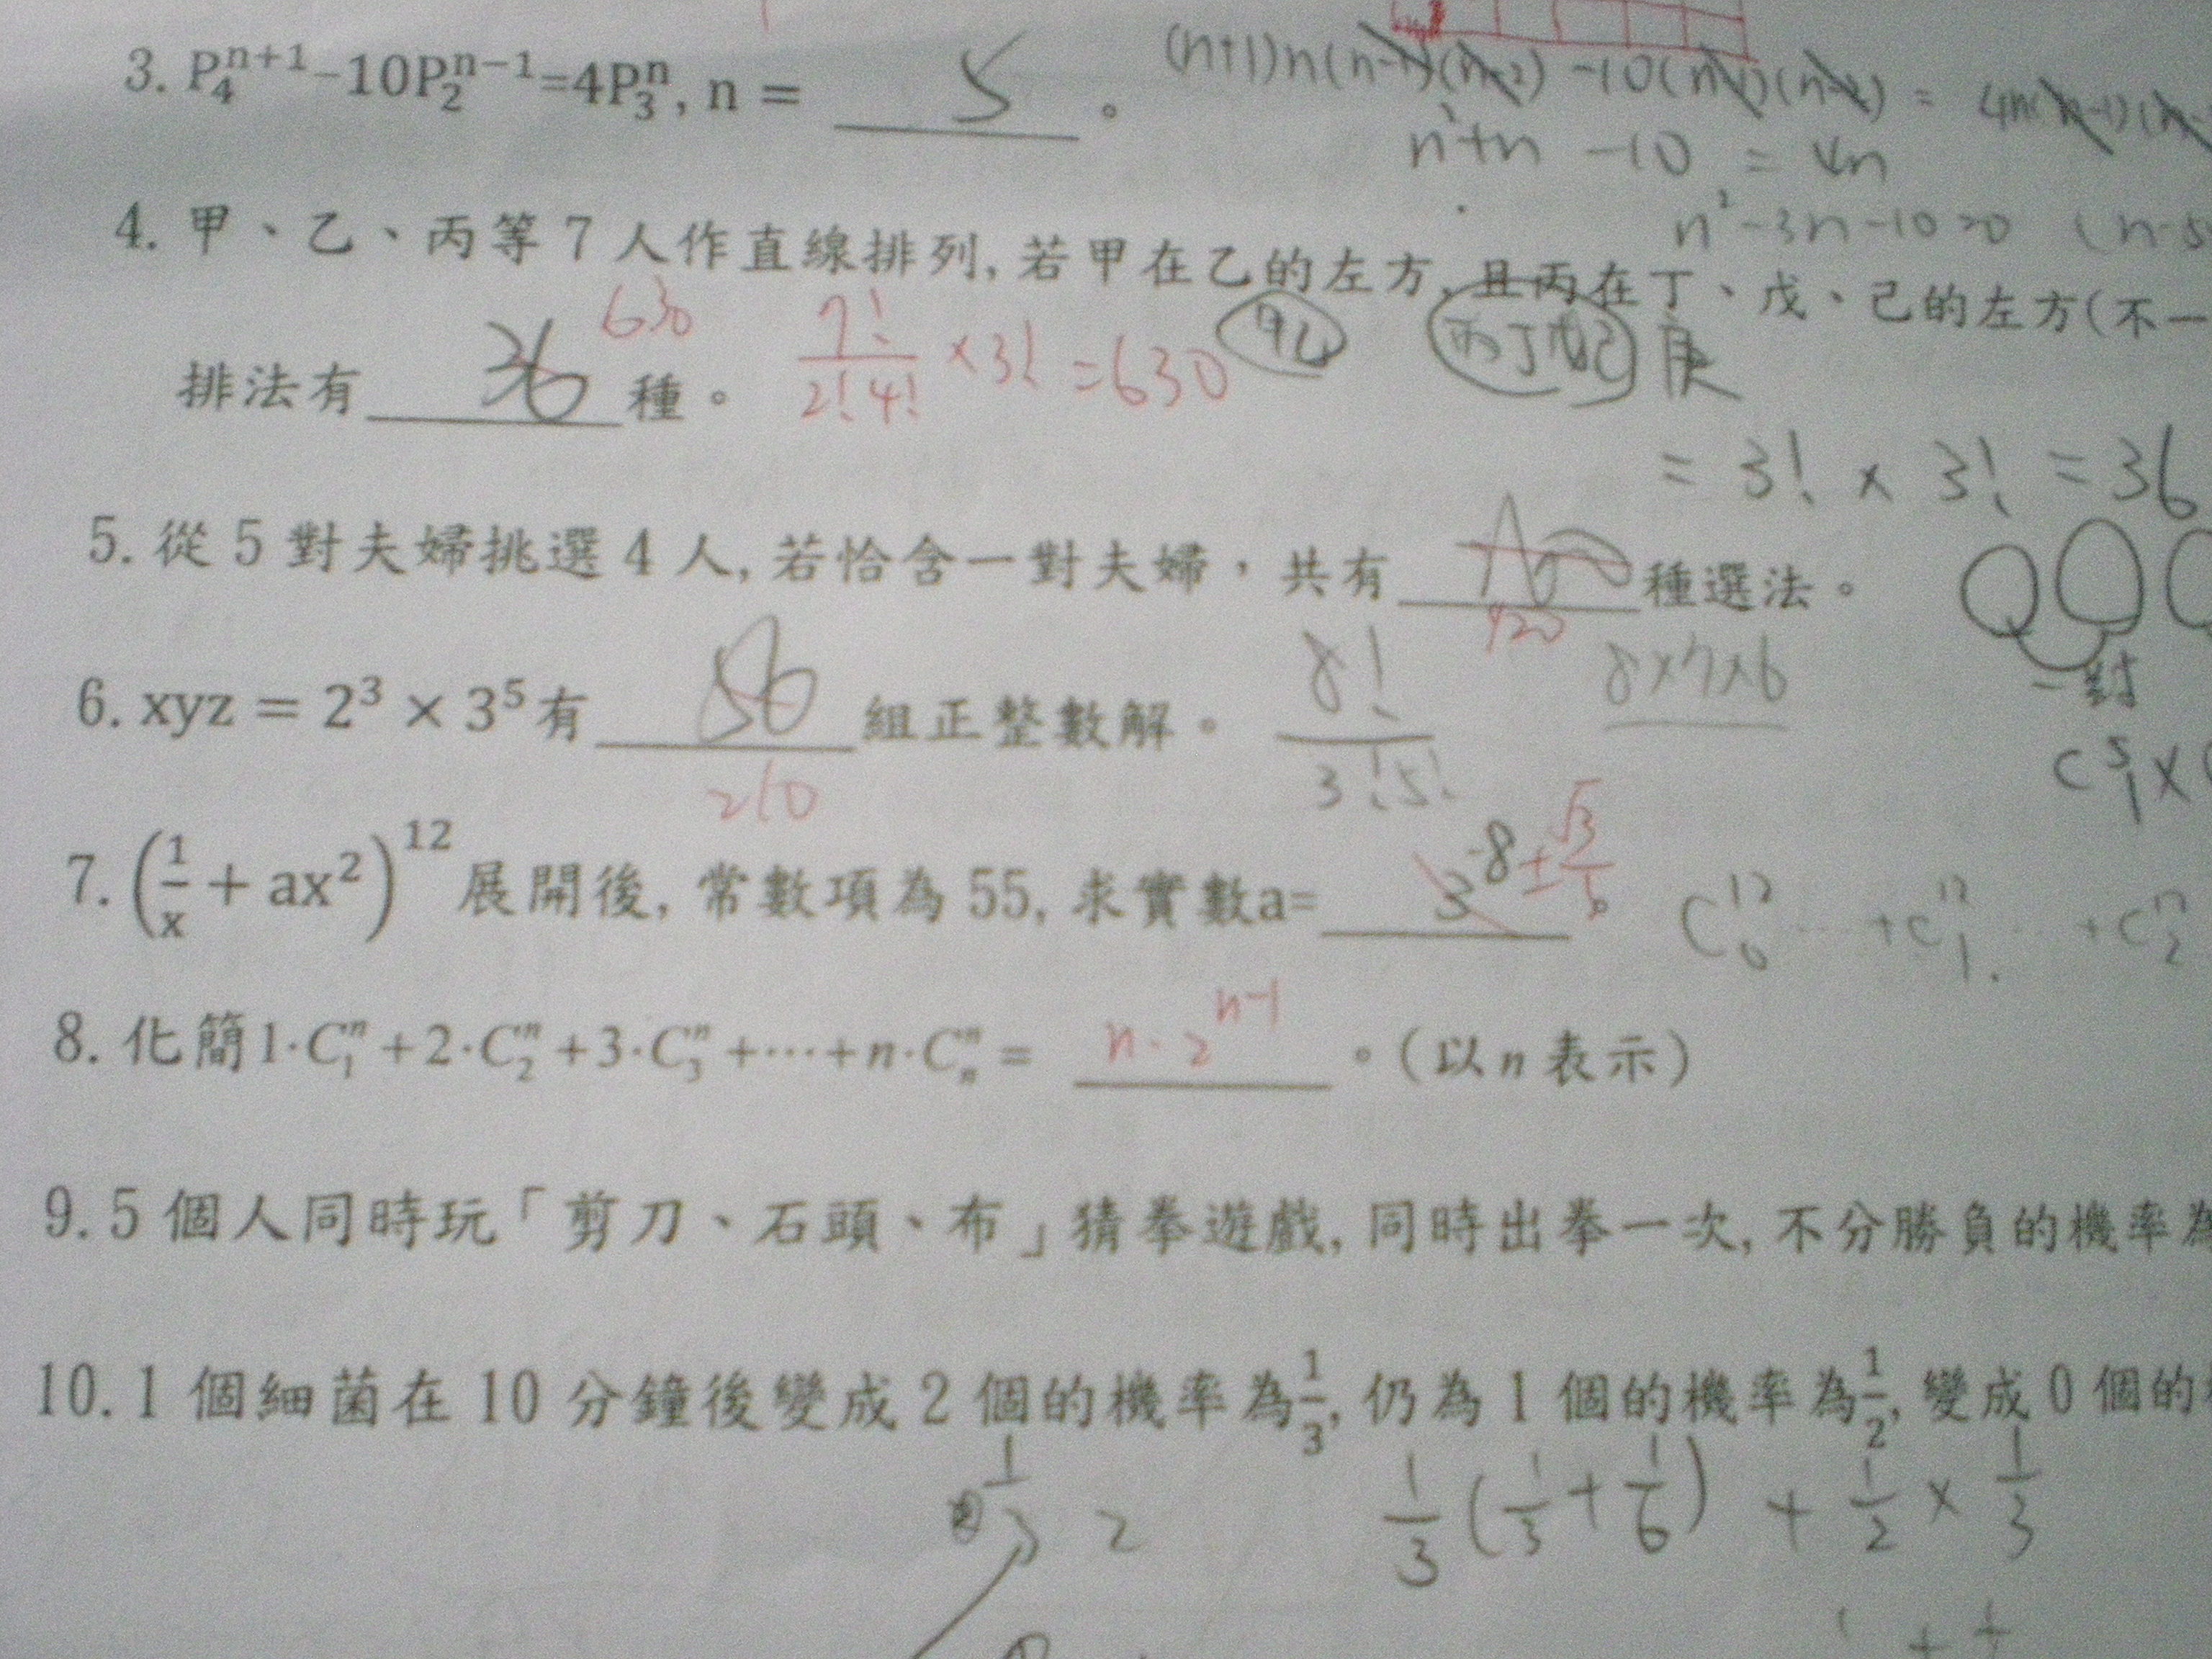 3. P₄ⁿ⁺¹-10P₂ⁿ⁻¹=4P₃ⁿ, n = 5 。
(n+1)n(n-1)(n-2) -10(n-1)(n-2) = 4n(n-1)(n-
n²+n -10 = 4n
n²-3n-10=0 (n-5
4. 甲、乙、丙等 7 人作直線排列, 若甲在乙的左方, 且丙在丁、戊、己的左方(不一
排法有 36 種。 630
7!/2!4! ×3! =630
甲乙 丙丁戊己 庚
= 3! × 3! = 36
5. 從 5 對夫婦挑選 4 人, 若恰含一對夫婦，共有 種選法。
120
一對
C⁵₁×
6. xyz = 2³ × 3⁵ 有 56 組正整數解。
210
8!/3!5!
8×7×6
7. (1/x + ax²)¹² 展開後, 常數項為 55, 求實數a= 3⁻⁸ 。
C¹²₀ ... +C¹²₁ ... +C¹²₂
8. 化簡1·C₁ⁿ+2·C₂ⁿ+3·C₃ⁿ+⋯+n·Cₙⁿ= n·2ⁿ⁻¹ 。(以n表示)
9. 5 個人同時玩「剪刀、石頭、布」猜拳遊戲, 同時出拳一次, 不分勝負的機率為
10. 1 個細菌在 10 分鐘後變成 2 個的機率為1/3, 仍為 1 個的機率為1/2, 變成 0 個的
1/3 2
1/3(1/3+1/6) + 1/2 × 1/3